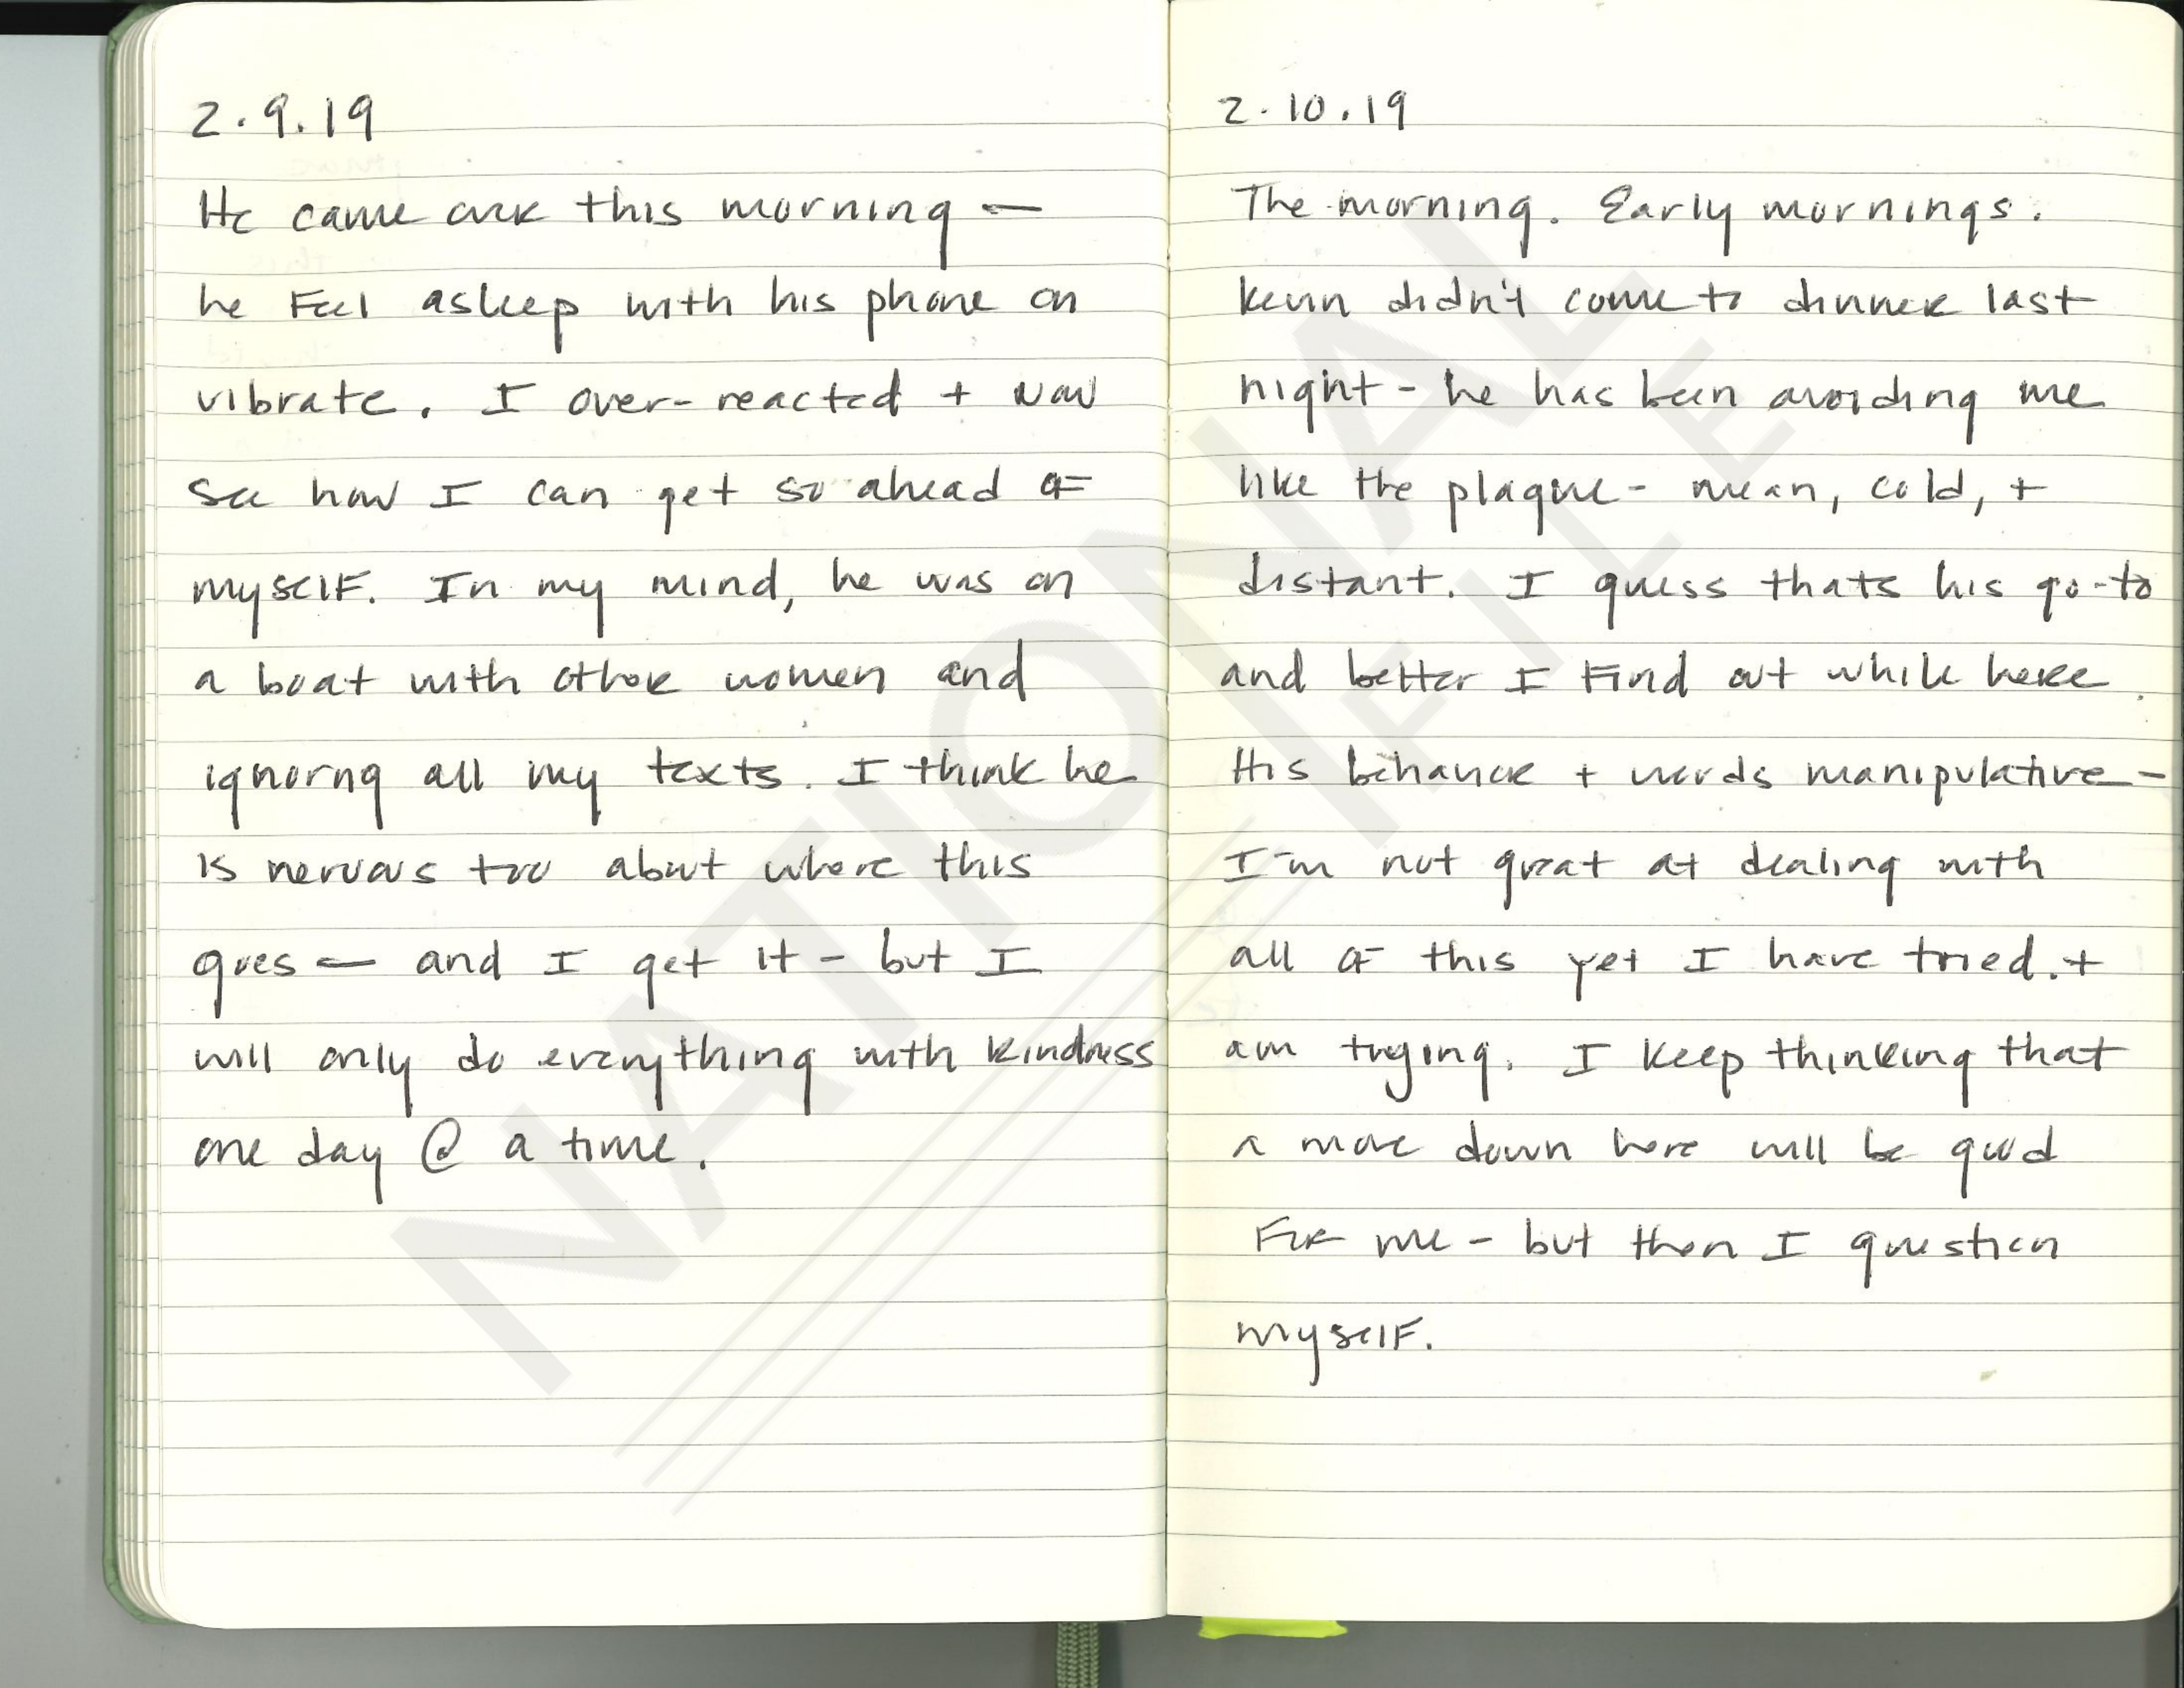 2.9.19
He came over this morning —
he feel asleep with his phone on
vibrate. I over-reacted + now
see how I can get so ahead of
myself. In my mind, he was on
a boat with other women and
ignorng all my texts. I think he
is nervous too about where this
goes — and I get it - but I
will only do everything with kindness
one day @ a time.
2.10.19
The morning. Early mornings.
Kevin didn't come to dinner last
night - he has been avoiding me
like the plague - mean, cold, +
distant. I guess thats his go-to
and better I find out while here.
His behavior + words manipulative -
I'm not great at dealing with
all of this yet I have tried. +
am trying. I keep thinking that
a move down here will be good
for me - but then I question
myself.
NATIONAL
FILE